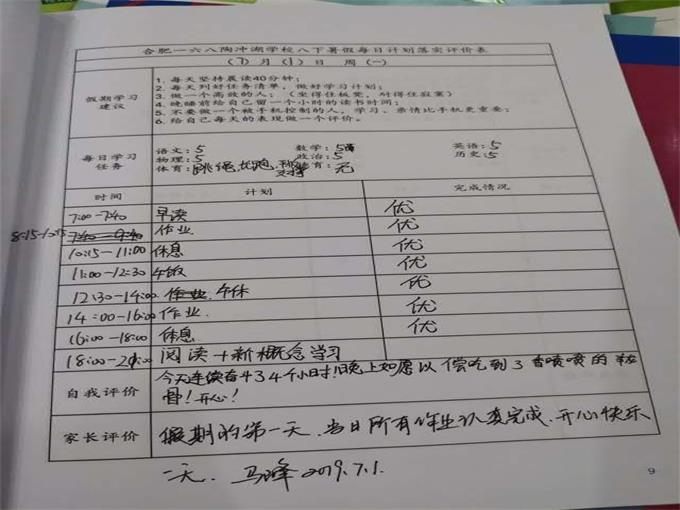 合肥一六八陶冲湖学校八下暑假每日计划落实评价表
(7)月(1)日 周(一)
假期学习建议
1. 每天坚持晨读40分钟；
2. 每天列好任务清单，做好学习计划；
3. 做一个高效的人；（坐得住板凳，对得住寂寞）
4. 晚睡前给自己留一个小时的读书时间；
5. 不要做一个被手机控制的人，学习、亲情比手机更重要；
6. 给自己每天的表现做一个评价。
每日学习任务
语文：5 数学：5 英语：5
物理：5 政治：5 历史：5
体育：跳绳, 支撑 育：无
时间 计划 完成情况
7:00-7:40 早读 优
8:15-10:15 7:40-9:40 作业 优
10:15-11:00 休息 优
11:00-12:30 午饭 优
12:30-14:00 作业 午休 优
14:00-16:00 作业. 优
16:00-18:00 休息 优
18:00-20:00 阅读+新概念学习
自我评价 今天连续奋斗了4个小时!晚上如愿以偿吃到了香喷喷的
骨!开心!
家长评价 假期的第一天、当日所有作业认真完成、开心快乐
一天. 马峰 2019.7.1.
9